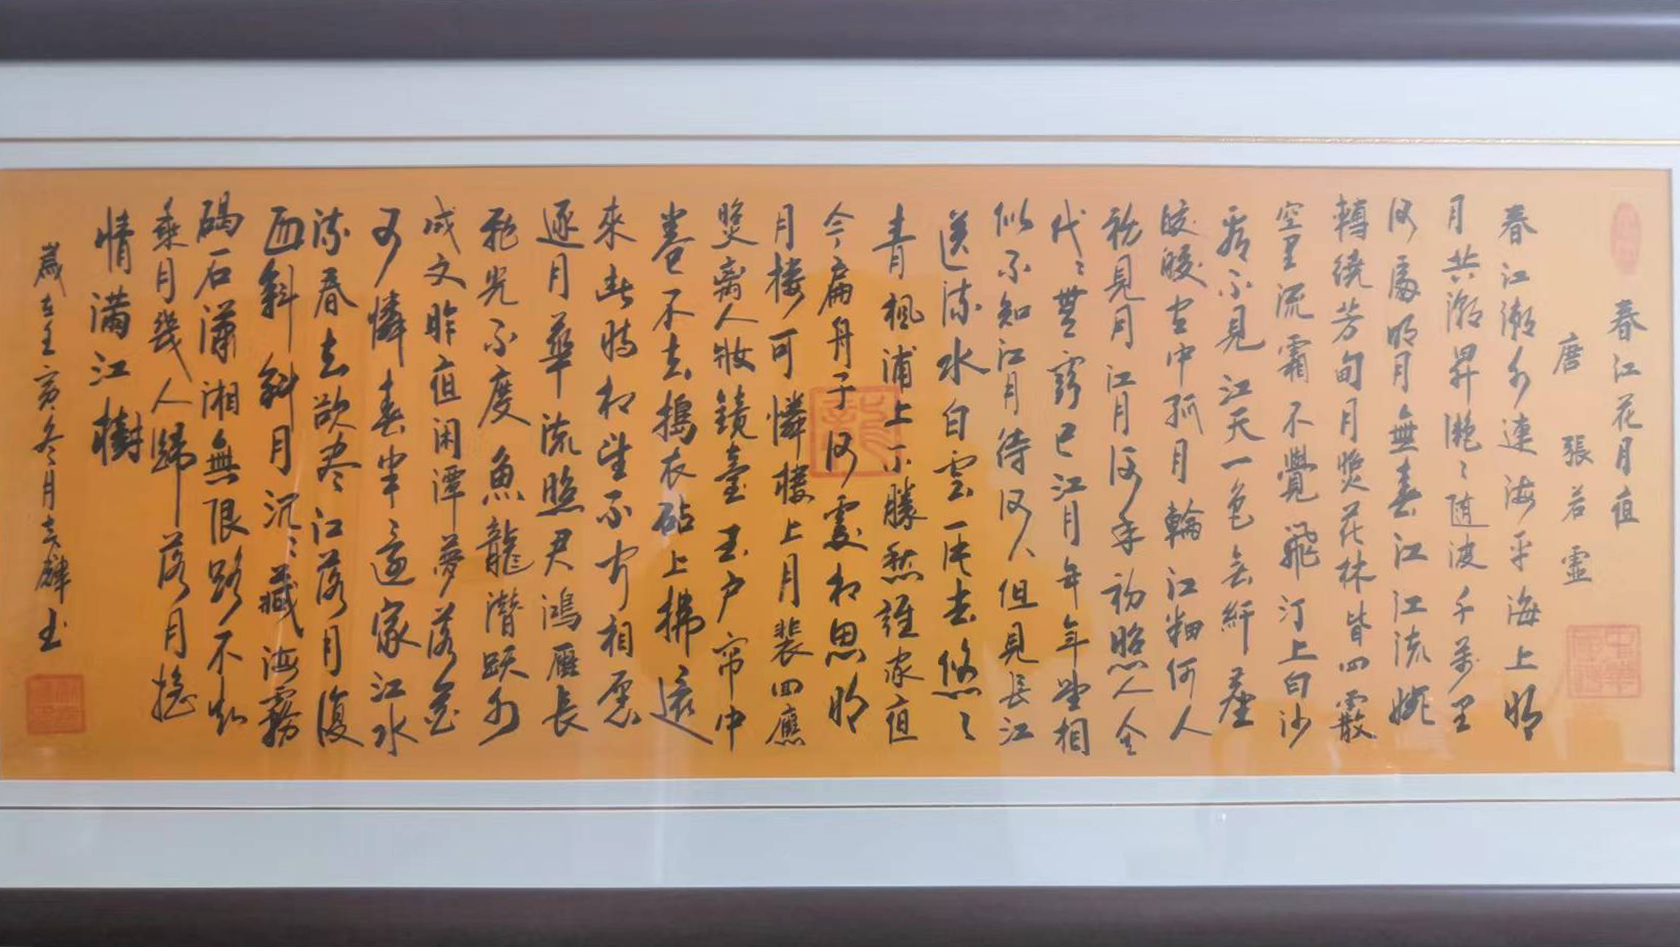 春江花月夜
唐 張若虛
春江潮水連海平海上明
月共潮昇灔〻随波千萬里
何處明月無春江江流婉
轉繞芳甸月照花林皆似霰
空里流霜不覺飛汀上白沙
看不見江天一色無纤塵
皎皎空中孤月輪江畔何人
初見月江月何年初照人人生
代〻無窮已江月年年望相
似不知江月待何人但見長江
送流水白雲一片去悠〻
青楓浦上不勝愁誰家夜
今扁舟子何處相思明
月樓可憐樓上月裴回應
照離人妝鏡臺玉户帘中
卷不去搗衣砧上拂還
來此時相望不聞相愿
逐月華流照君鴻雁長
飛光不度魚龍潛躍水
成文昨夜闲潭夢落花
可憐春半不還家江水
流春去欲尽江落月復
西斜斜月沉〻藏海霧
碣石瀟湘無限路不知
乘月幾人歸落月搖
情滿江樹
歲在亥冬月書
龍